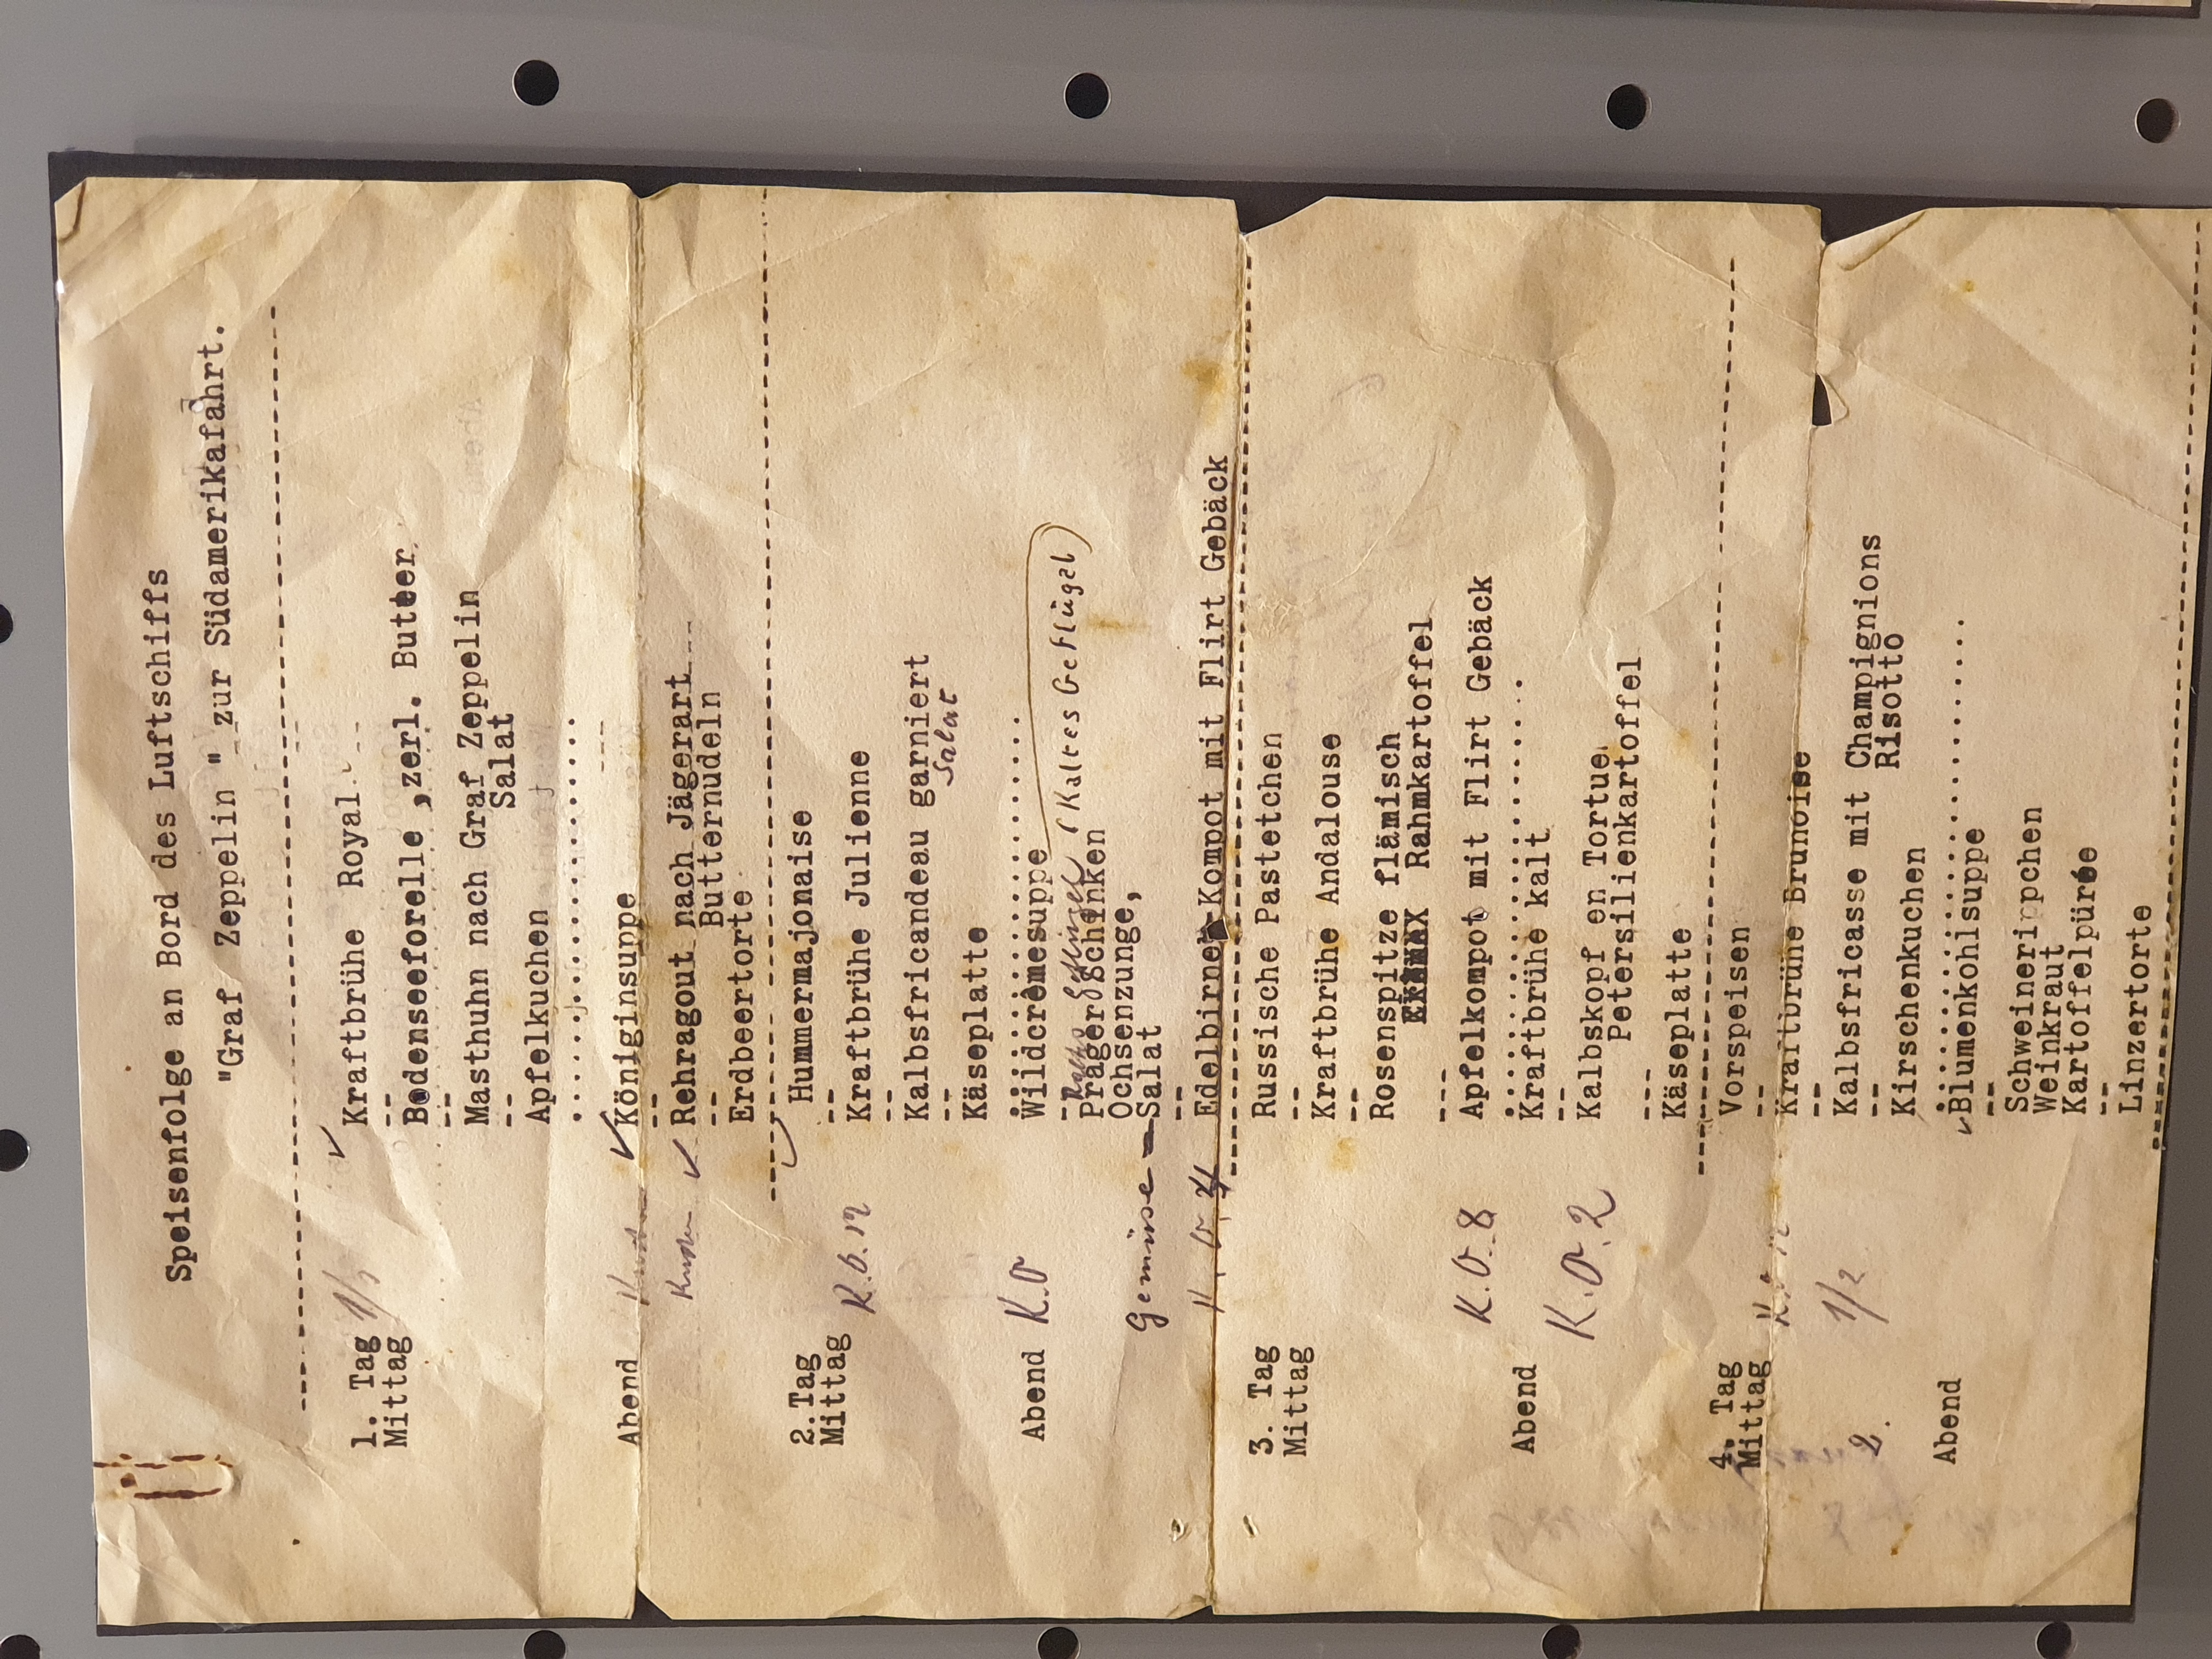 Speisenfolge an Bord des Luftschiffs
"Graf Zeppelin " zur Südamerikafahrt.
1. Tag
Mittag
1/3
Kraftbrühe Royal
--
Bodenseeforelle ,zerl. Butter
--
Masthuhn nach Graf Zeppelin
Salat
--
Apfelkuchen
Abend
Königinsuppe
--
Rehragout nach Jägerart
Butternudeln
--
Erdbeertorte
2.Tag
Mittag
Hummermajonaise
--
Kraftbrühe Julienne
--
Kalbsfricandeau garniert
Salat
--
Käseplatte
Abend K.O
Wildcrèmesuppe
--
(Kaltes Geflügel)
Prager Schinken
Ochsenzunge,
Gemüse - Salat
--
Edelbirnen Kompot mit Flirt Gebäck
3. Tag
Mittag
Russische Pastetchen
--
Kraftbrühe Andalouse
--
Rosenspitze flämisch
Rahmkartoffel
---
K.O. 8
Apfelkompot mit Flirt Gebäck
Abend
Kraftbrühe kalt
--
K.O. 2
Kalbskopf en Tortue
Petersilienkartoffel
---
Käseplatte
4. Tag
Mittag
Vorspeisen
--
Kraftbrühe Brunoise
--
1/2
2.
Kalbsfricasse mit Champignions
Risotto
--
Kirschenkuchen
Abend
Blumenkohlsuppe
--
Schweinerippchen
Weinkraut
Kartoffelpürée
--
Linzertorte